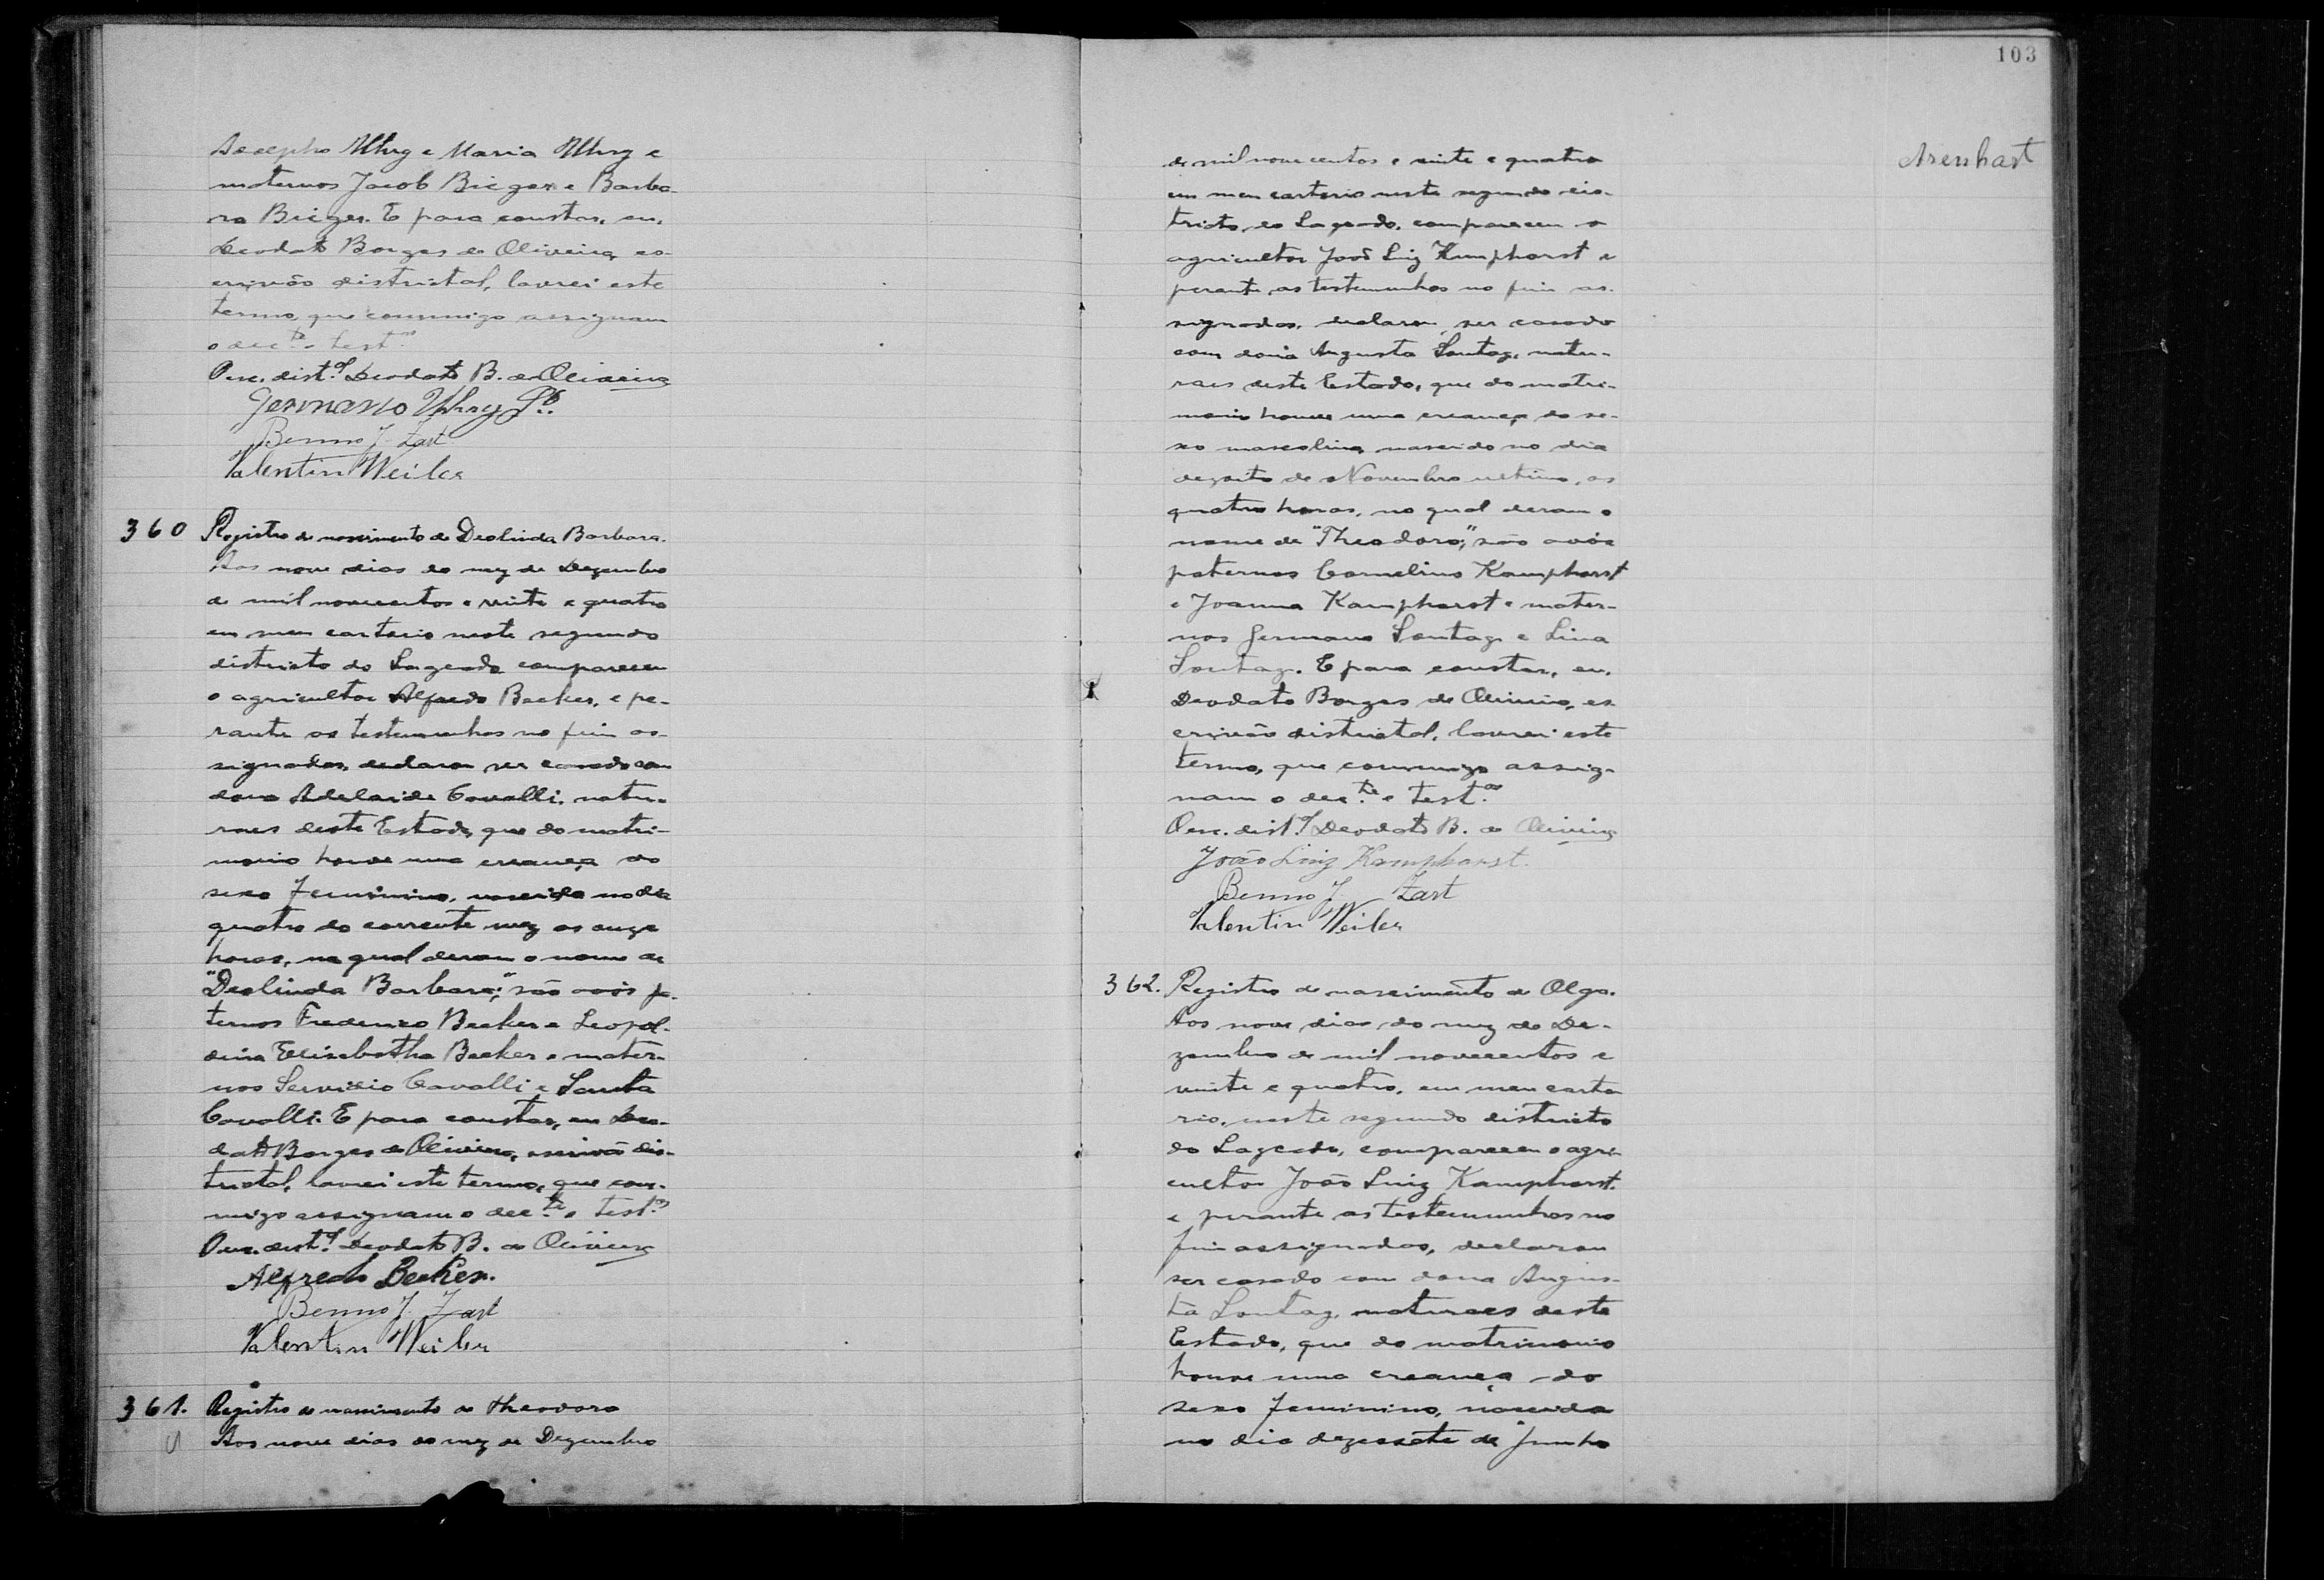 Adolpho Uhry e Maria Uhry e
maternos Jacob Bieger e Barba-
ra Bieger. E para constar, eu,
Deodato Borges de Oliveira, es-
crivão districtal, lavrei este
termo, que commigo assignam
o decte e testas
O esc. distal Deodato B. de Oliveira
Germano Uhry
Benno J. Zart
Valentin Weiler
360 Registro de nascimento de Deolinda Barbara.
Aos nove dias do mez de Dezembro
de mil novecentos e vinte e quatro
em meu cartorio neste segundo
districto do Lageado compareceu
o agricultor Alfredo Becker, e pe-
rante as testemunhas no fim as-
signadas, declarou ser casado com
dona Adelaide Cavalli, natu-
raes deste Estado, que do matri-
monio houve uma creança do
sexo feminino, nascida no dia
quatro do corrente mez as onze
horas, na qual deram o nome de
"Deolinda Barbara"; são avós pa-
ternos Frederico Becker e Leopol-
dina Elisabetha Becker e mater-
nos Servidio Cavalli e Santa
Cavalli. E para constar, eu Deo-
dato Borges de Oliveira, escrivão dis-
trictal, lavrei este termo, que com-
migo assignam o decte e testas
O esc. distal Deodato B. de Oliveira
Alfredo Becker.
Benno J. Zart
Valentin Weiler
361. Registro de nascimento de Theodoro
Aos nove dias do mez de Dezembro
103
Arenhart
de mil novecentos e vinte e quatro
em meu cartorio neste segundo dis-
tricto, do Lageado, compareceu o
agricultor João Luiz Kamphorst e
perante as testemunhas no fim as-
signadas, declarou ser casado
com dona Augusta Sontag, natu-
raes deste Estado, que do matri-
monio houve uma creança do se-
xo masculino, nascido no dia
dezoito de Novembro ultimo, as
quatro horas, no qual deram o
nome de "Theodoro"; são avós
paternos Cornelius Kamphorst
e Joanna Kamphorst e mater-
nos Germano Sontag e Lina
Sontag. E para constar, eu,
Deodato Borges de Oliveira, es-
crivão districtal, lavrei este
termo, que commigo assig-
nam o decte e testas
O esc. distal Deodato B. de Oliveira
João Luiz Kamphorst.
Benno J. Zart
Valentin Weiler
362. Registro de nascimento de Olga.
Aos nove dias do mez de De-
zembro de mil novecentos e
vinte e quatro, em meu carto-
rio, neste segundo districto
do Lageado, compareceu o agri-
cultor João Luiz Kamphorst.
e perante as testemunhas no
fim assignadas, declarou
ser casado com dona Augus-
ta Sontag, naturaes deste
Estado, que do matrimonio
houve uma creança do
sexo feminino, nascida
no dia dezessete de Junho